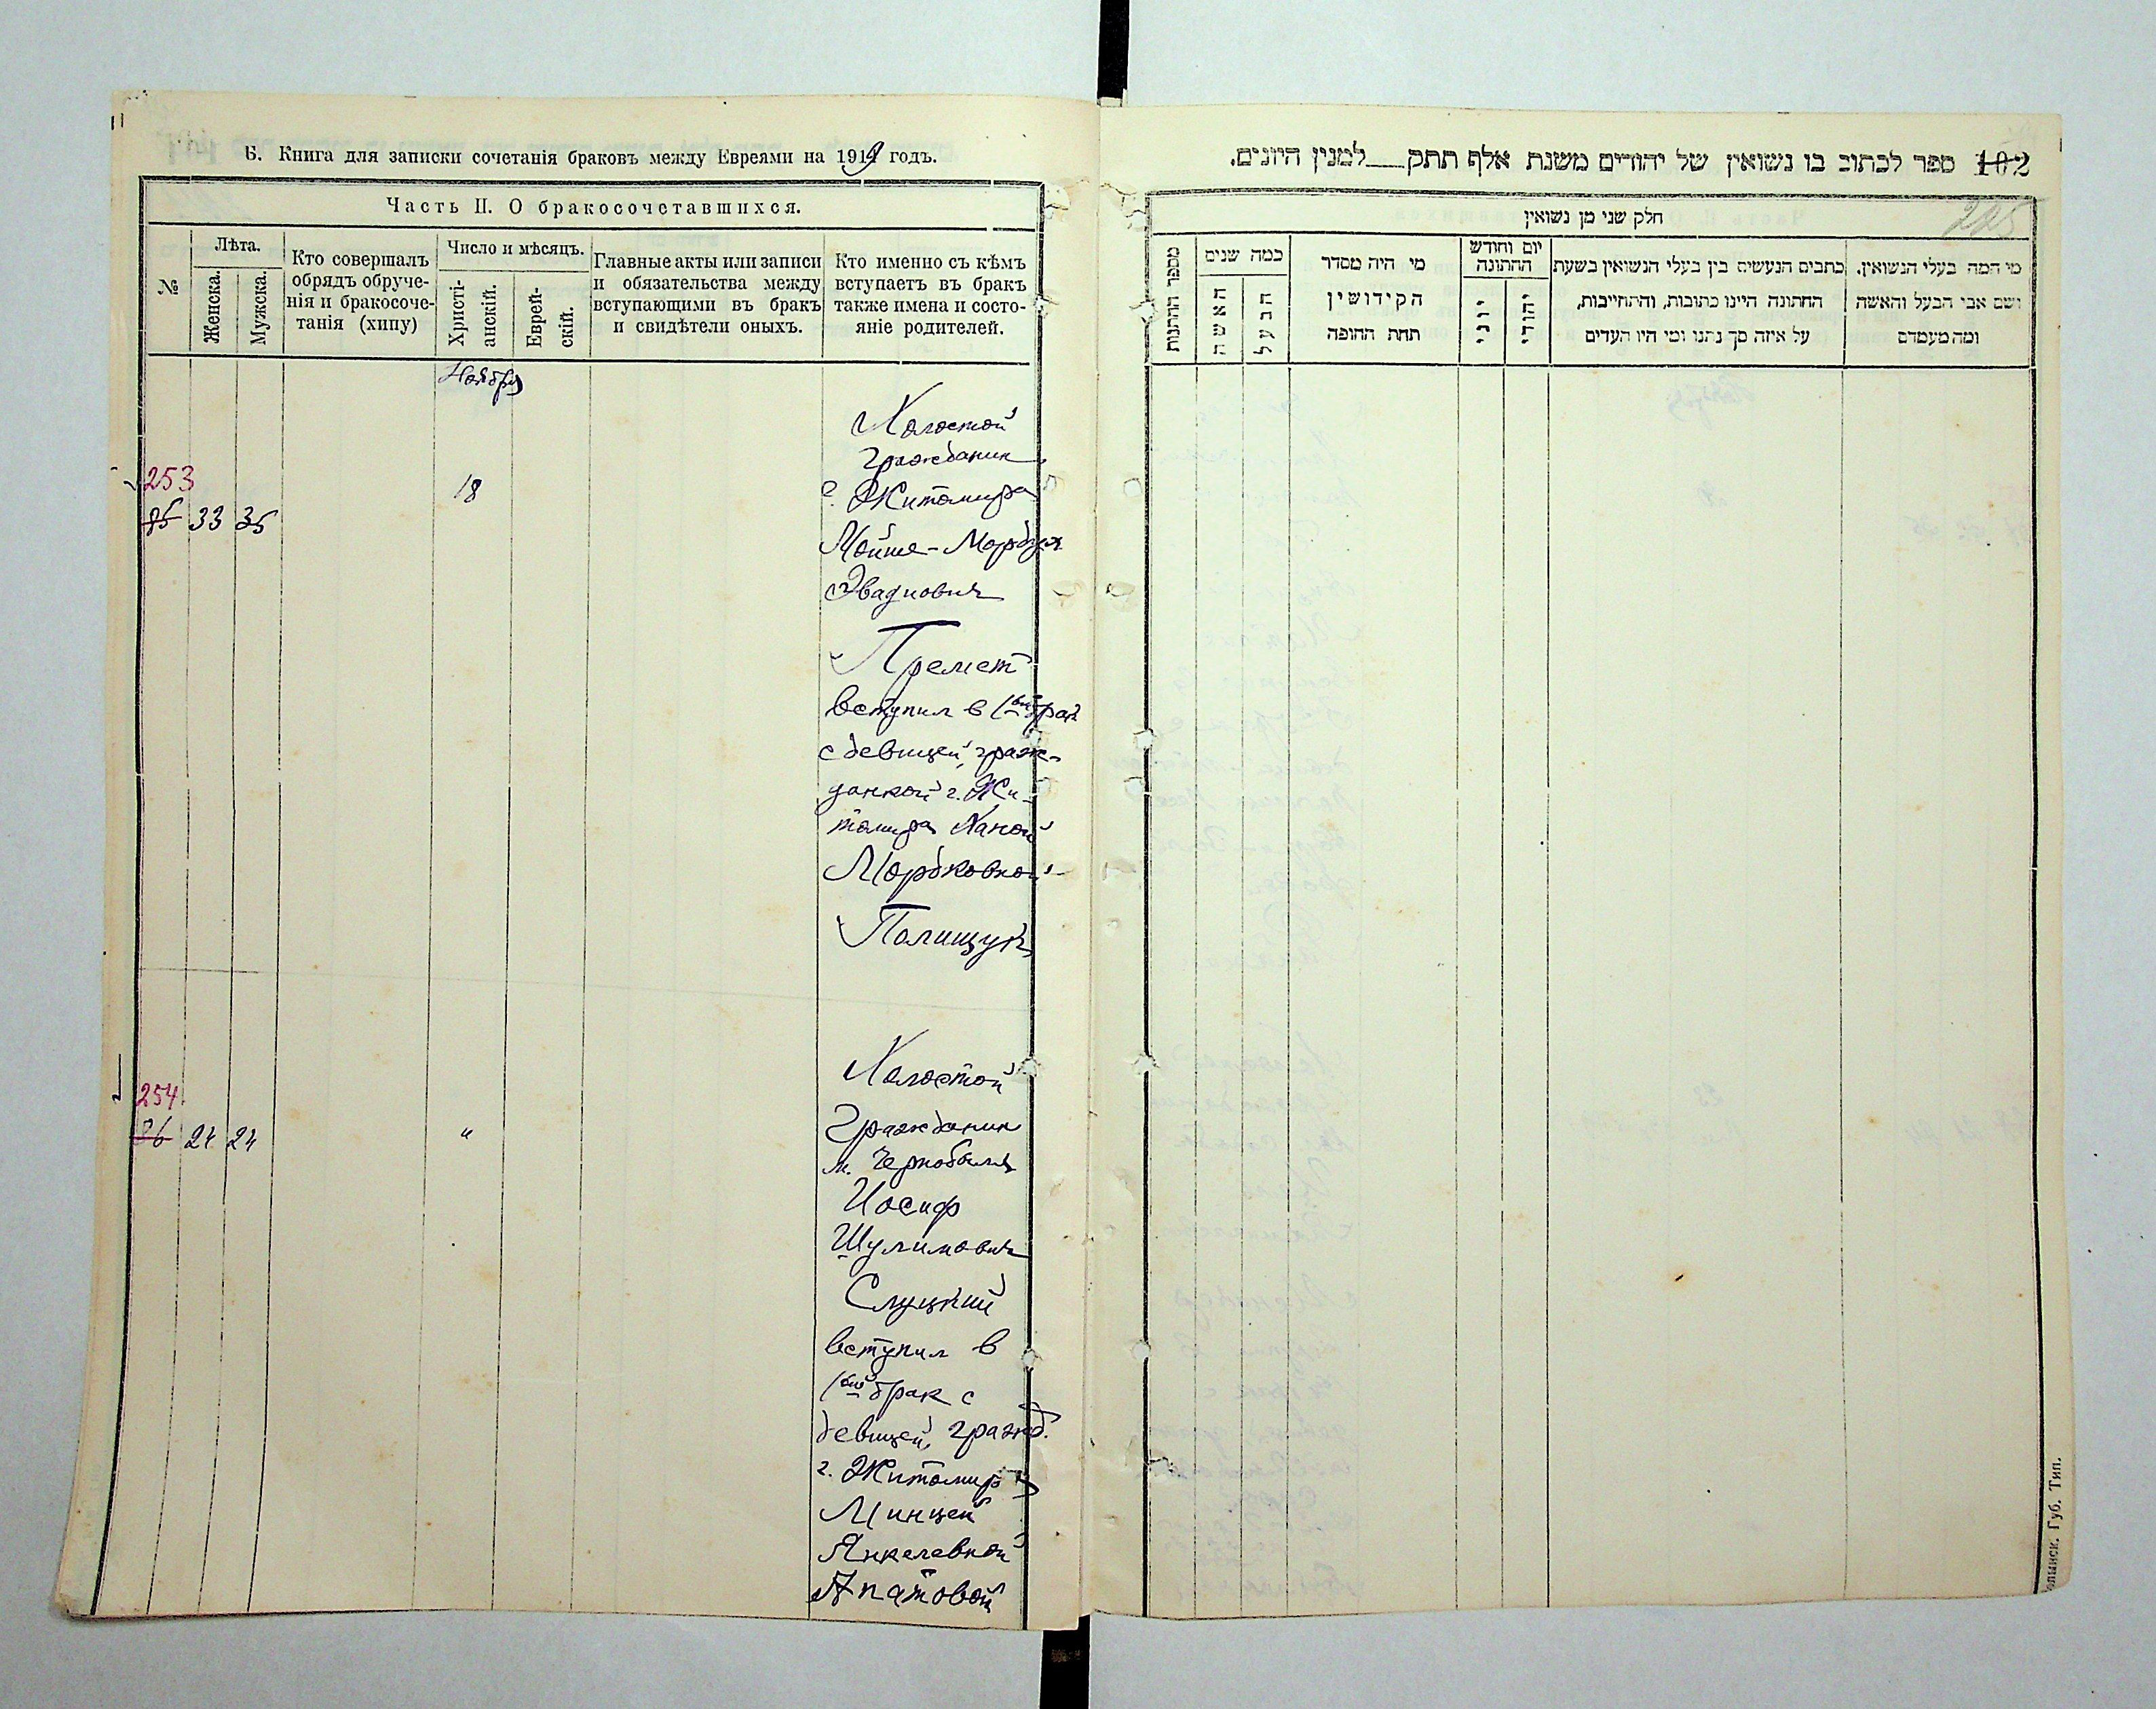 Б. Книга для записки сочетанія браковъ между Евреями на 1919 годъ.
Часть II. О бракосочетавшихся.
№
Лѣта.
Женска.
Мужска.
Кто совершалъ
обрядъ обруче-
нія и бракосоче-
танія (хипу)
Число и мѣсяцъ.
Христі-
анскій.
Еврей-
скій.
Главные акты или записи
и обязательства между
вступающими въ бракъ
и свидѣтели оныхъ.
Кто именно съ кѣмъ
вступаетъ въ бракъ
также имена и состо-
яніе родителей.
Ноября
253
85 33 35
18
Холостой
гражданин
г. Житомира
Мойше-Мордух
Эваднович
Премет
вступил в 1ый брак
с девицей, граж-
данкой г. Жи-
томира Ханой
Мордковной
Полищук
254
86 24 24
"
Холостой
Гражданин
м. Чернобыля
Иосиф
Шулимович
Слуцкий
вступил в
1ый брак с
девицей, гражд.
г. Житомира
Минцей
Янкелевной
Апатовой
102 ספר לכתוב בו נשואין של יהודים משנת אלף תתק למנין היונים.
205
חלק שני מן נשואין
מספר החתונות
כמה שנים
האשה
הבעל
מי היה מסדר
הקידושין
תחת החופה
יום וחודש
החתונה
יוני
יהודי
כתבים הנעשים בין בעלי הנשואין בשעת
החתונה היינו כתובות, והתחייבות,
על איזה סך נתנו ומי היו העדים
מי המה בעלי הנשואין.
ושם אבי הבעל והאשה
ומה מעמדם
Волынск. Губ. Тип.